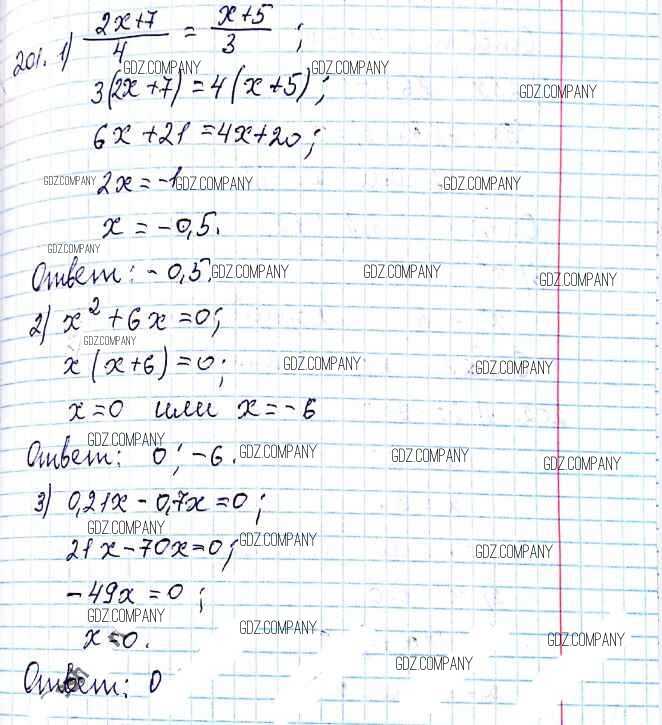 201. 1) (2x+7)/4 = (x+5)/3 ;
GDZ.COMPANY GDZ.COMPANY
3(2x+7)=4(x+5);
GDZ.COMPANY
6x+21=4x+20;
GDZ.COMPANY 2x=-1 GDZ.COMPANY GDZ.COMPANY
x=-0,5.
GDZ.COMPANY
Ответ: -0,5. GDZ.COMPANY GDZ.COMPANY GDZ.COMPANY
2) x²+6x=0;
GDZ.COMPANY
x(x+6)=0; GDZ.COMPANY GDZ.COMPANY
x=0 или x=-6
GDZ.COMPANY
Ответ: 0; -6. GDZ.COMPANY GDZ.COMPANY GDZ.COMPANY
3) 0,21x-0,7x=0;
GDZ.COMPANY GDZ.COMPANY
21x-70x=0; GDZ.COMPANY
-49x=0;
GDZ.COMPANY GDZ.COMPANY
x=0. GDZ.COMPANY
GDZ.COMPANY
Ответ: 0